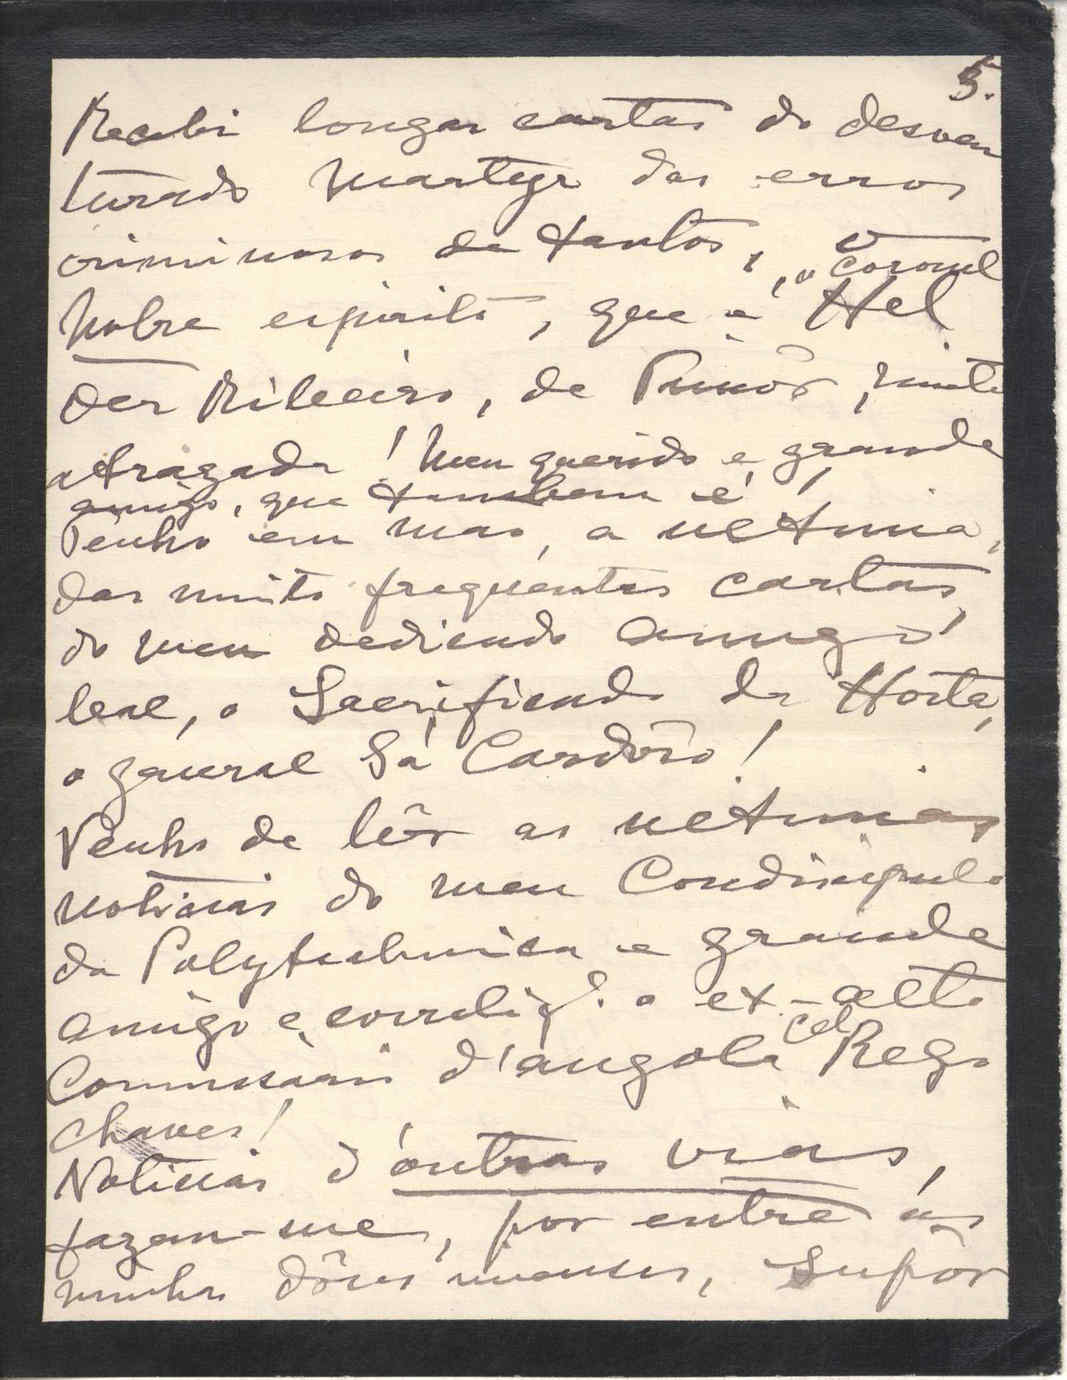 5.
Recebi longas cartas do desven
turado Martyr dos erros
criminosos de tantos, o coronel
Nobre espirito, que é Hel
der Ribeiro, de
atrazada! Meu querido e grande
amigo, que tambem é!
Tenho em mão, a ultima,
das muito frequentes cartas,
do meu dedicado amigo
leal, o Sacrificado da Horta,
o general Sá Cardoso!
Venho de lêr as ultimas
noticias do meu Condiscipulo
da Polytechnica e grande
amigo e correlig.º o ex-alto
Commissario d'Angola Cel Rego
Chaves!
Noticias d'outras vias,
fazem-me, por entre as
minhas dôres immensas, Supôr